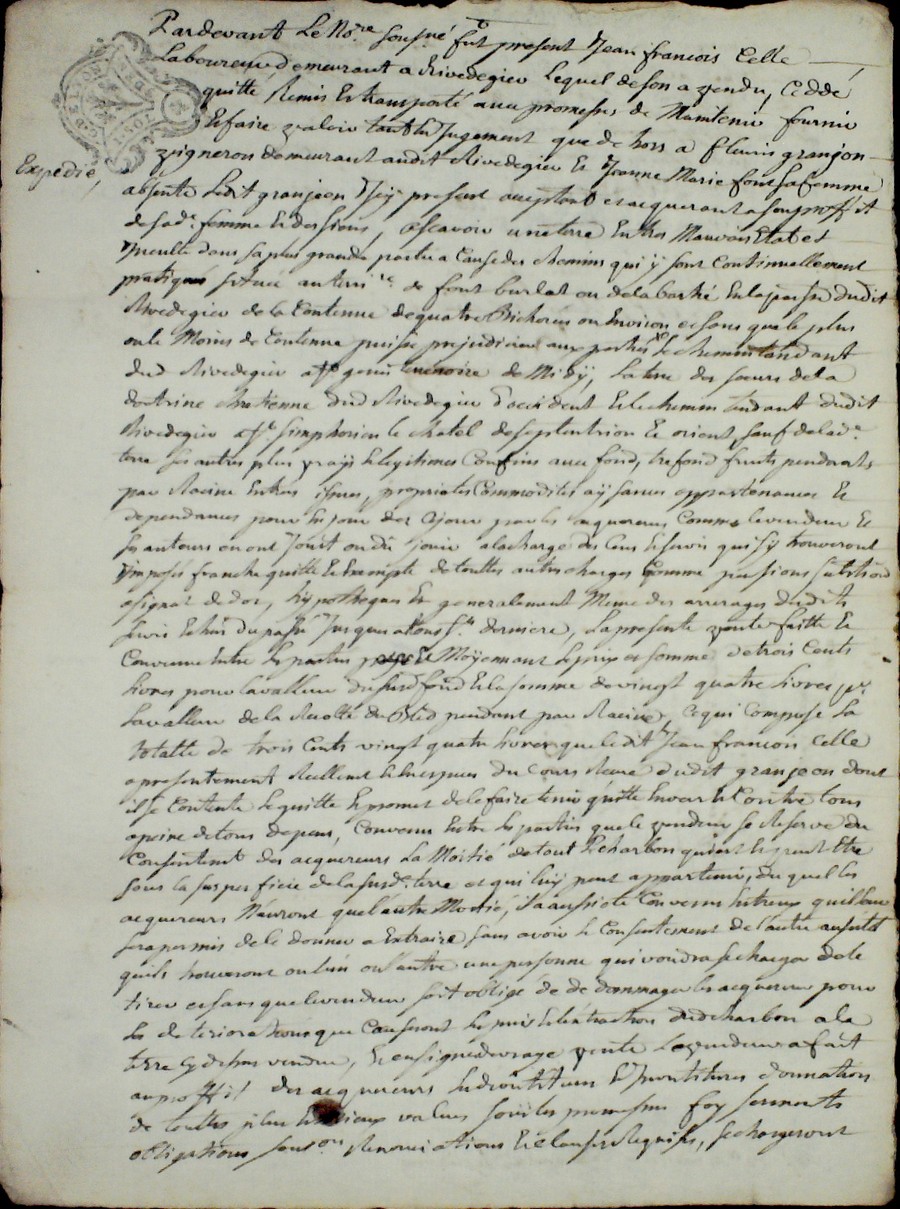 Pardevant Le No.re sousné fut present Jean francois Celle
Laboureur demeurant a Rivedegier Lequel deson a vendu, Ceddé
quitté Remis Et transporté avec promesses de Maintenir fournir
Et faire valoir tant En Jugement que de hors a fleuris granjon
vigneron demeurant audit Rivedegier Et Jeanne Marie font sa femme
Expedié
absente Ledit granjeon Icy present acceptant et acquerant a son proffit
de sad. femme Et des siens, ascavoir une terre En tres Mauvais Etat et
Inculte dans sa plus grande partie a Cause des chemins qui y sont Continuellement
pratiqués située au terri.re de font burlat ou de la barhé En la paroisse dudit
Rivedegier de la Contenue de quatre Bichorées ou Environ et sans que le plus
ou le Moins de Contenue puisse prejudicier aux parties Le chemin tendant
dud Rivedegier a St genis terrenoire de Midy, La terre des soeurs de la
doctrine chretienne dud Rivedegier d'occident Et le chemin tendant dudit
Rivedegier a St. simphorien le chatel de septentrion Et orient sauf de lad.e
terre ses autres plus vrays Et legitimes Confins avec fond, trefond fruits pendants
par Racine Entrées issues, proprietés Commodités aysances appartenances Et
dependances pour En jouir dez Cejour par les acquereurs Comme le vendeur Et
ses auteurs en ont Jouit ou dû jouir a la charge des Cens Et servis qui s'y trouveront
Imposés franche quitte Et Exempte de touttes autres charges Comme pensions
de dot, hypotheques Et generalement Meme des arrerages desdits
servis Echus du passé Jusques a la derniere, La presente vente faitte Et
Convenue Entre les parties Moyennant le prix et somme de trois Cents
livres pour la valleur du susd fond Et la somme de vingt quatre livres pr.
La valleur de la Recolte du bled pendant par Racine, Ce qui Compose La
totalle de trois Cents vingt quatre livres que ledit Jean francois Celle
a presentement Reellement Et du dudit granjeon dont
il se Contente Et quitte Et promet de le faire tenir quitte Envers Et Contre tous
a peine de tous depens, Convenu Entre les parties que le vendeur se Reserve du
Consentement des acquereurs La Moitié de tout Le charbon qui est Et peut Etre
sous la superficie de la susd.e terre et qui luy peut appartenir, du quel les
acquereurs N'auront que l'autre Moitié, Il a aussi eté Convenu Entreux quil leur
sera permis de le donner a Extraire sans avoir le Consentement de l'autre aussitot
quils trouveront ou lun ou l'autre une personne qui voudra se charger de le
tirer et sans que le vendeur soit obligé de de dommager les acquereurs pour
les deteriorations que Causeront les puis Et l'extraction dud charbon a la
terre cy dessus vendue, Et en signe de vraye vente Le vendeur a fait
au proffit des acquereurs Et Investitures donnation
de touttes plus Et Mieux values sous les promesses foy serments
obligations sous.ons Renonciations Et Clauses Requises, se chargeront